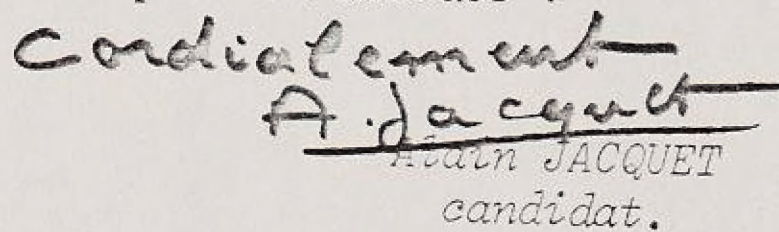 Cordialement
A. Jacquet
Alain JACQUET
candidat.